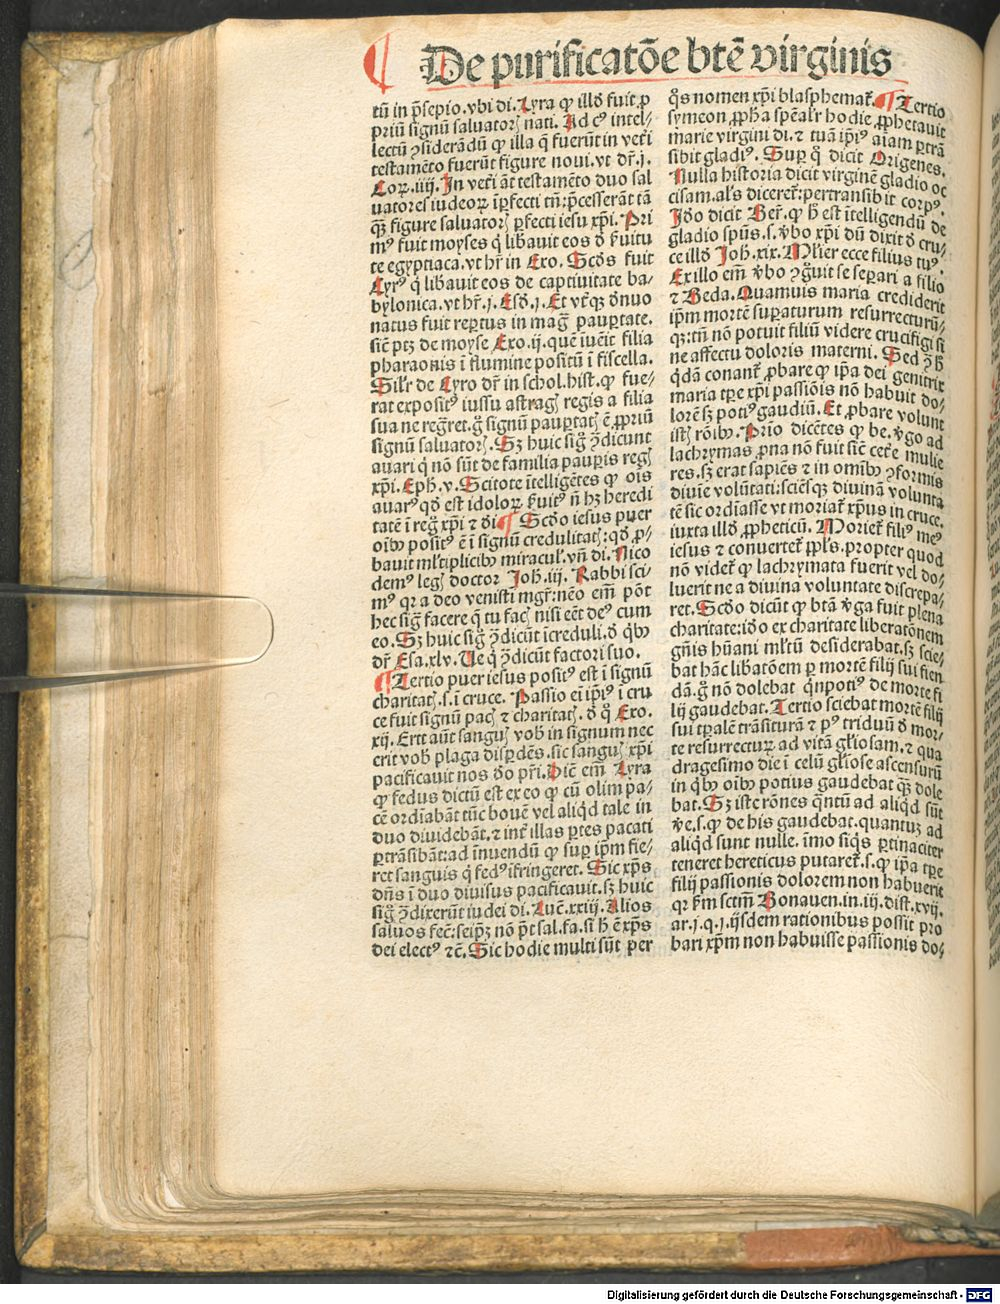 ¶ De purificatōe btē virginis
tū in p̄sepio. vbi di. Lyra ꝙ illd̄ fuit ꝓ
priū signū saluatorꝭ nati. Ad cꝰ intel⸗
lectū ꝯsiderādū ꝙ illa q̄ fuerūt in vet̄i
testamēto fuerūt figure noui. vt dr̄. j.
Coꝝ. iiij. In vet̄i āt testamēto duo sal
uatores iudeoꝝ īꝑfecti tn̄: p̄cesserāt tā
qȝ̄ figure saluatorꝭ ꝑfecti iesu xp̄i. Pri
mꝰ fuit moyses q̇ lib̄auit eos d̄ ẜuitu
te egyptiaca. vt hr̄ in Exo. Scd̄s fuit
Cyrꝰ q̇ lib̄auit eos de captiuitate ba⸗
bylonica. vt hr̄. j. Esd̄. j. Et vt̄qȝ d̄nuo
natus fuit repertus in maḡ pauꝑtate.
sic̄ ptȝ de moyse Exo. ij. quē iuēit filia
pharaonis ī flumine positū ī fiscella.
Sil̄r de Cyro dr̄ in schol. hist. ꝙ fue⸗
rat expositꝰ iussu astragꝭ regis a filia
sua ne regr̄et. g̊ signū pauꝑtatꝭ ē ꝓpriū
signū saluatorꝭ. Sȝ huic sig̊ ꝯ̄dicunt
auari q̇ nō sūt de familia pauꝑis regꝭ
xp̄i. Eph. v. Scitote ītelligētes ꝙ oīs
auarꝰ qd̄ est idoloꝝ ẜuitꝰ n̄ hȝ heredi
tatē ī reg̊ xp̄i ⁊ d̄i ¶ Scd̄o iesus puer
oībꝫ positꝰ ē ī signū credulitatꝭ: qd̄ ꝓ⸗
bauit ml̄tiplicibꝫ miracul̓. vn̄ di. Nico
demꝰ legꝭ doctor Joh. iij. Rabbi sci⸗
mꝰ qꝛ a deo venisti mgr̄: nēo em̄ pōt
hec sig̊ facere q̄ tu facꝭ nisi eēt deꝰ cum
eo. Sȝ huic sig̊ ꝯ̄dicūt īcreduli. d̄ q̇bꝫ
dr̄ Esa. xlv. Ue q̇ ꝯ̄dicūt factori suo.
¶ Tertio puer iesus positꝰ est ī signū
charitatꝭ. s. ī cruce. Passio em̄ ip̄iꝰ ī cru
ce fuit signū pacꝭ ⁊ charitatꝭ. d̄ q̊ Exo.
xij. Erit aūt sanguꝭ vob̄ in signum nec
erit vob̄ plaga disꝑdēs. sic sanguꝭ xp̄i
pacificauit nos d̄o pr̄i. Dic̄ em̄ Lyra
ꝙ fedus dictū est ex eo ꝙ cū olim pa⸗
cē ordīabāt tūc bouē vel aliqd̄ tale in
duo diuidebāt. ⁊ int̄ illas ꝑtes pacati
ꝑtrāsibāt: ad īnuendū ꝙ suꝑ ip̄m fie⸗
ret sanguis q̇ fedꝰ īfringeret. Sic xp̄s
dn̄s ī duo diuisus pacificauit. sȝ huic
sig̊ ꝯ̄dixerūt iudei di. Luc̄. xxiij. Alios
saluos fec̄: seip̄ȝ nō p̄t sal. fa. si h̄ ē xp̄s
dei electꝰ ⁊c̄. Sic hodie multi sūt per
q̊s nomen xp̄i blasphemat̄. ¶ Tertio
symeon ꝓph̄a sp̄eal̓r hodie ꝓphetauit
marie virgini di. ⁊ tuā ip̄iꝰ aīam ꝑtrā
sibit gladiꝰ. Suꝑ q̊ dicit Origenes.
Nulla historia dicit virginē gladio oc
cisam. al̓s diceret̄: pertransibit corpꝰ.
Id̄o dicit Ber̄. ꝙ h̄ est ītelligendū de
gladio spūs. s. v̄bo xp̄i dū dixit d̄ cru⸗
ce illd̄ Joh̄. xix. Ml̓ier ecce filius tuꝰ.
Ex illo em̄ v̄bo ꝯg̊uit se seꝑari a filio
⁊ Beda. Quamuis maria crediderit
ip̄m mortē suꝑaturum resurrecturū⸗
qȝ: tn̄ nō potuit filiū videre crucifigi si
ne affectu doloris materni. Sed ꝯ̄ h̄
q̇dā conant̄ ꝓbare ꝙ ip̄a dei genitrix
maria tꝑe xp̄i passiōis nō habuit do⸗
lorē sȝ potiꝰ gaudiū. Et ꝓbare volunt
istꝭ rōībꝫ. Prīo dicētes ꝙ be. v̄go ad
lachrymas ꝓna nō fuit sic̄ cet̄e mulie
res. sȝ erat sapiēs ⁊ in omībꝫ ꝯformis
diuīe volūtati: sciēsqȝ diuinā volunta
tē sic ordiasse vt moriat̄ xp̄us in cruce.
iuxta illd̄ ꝓpheticū. Moriet̄ filiꝰ meꝰ
iesus ⁊ conuertet̄ ppl̓s. propter quod
nō videt̄ ꝙ lachrymata fuerit vel do⸗
luerit ne a diuina voluntate discrepa⸗
ret. Scd̄o dicūt ꝙ btā v̄ga fuit plena
charitate: iō ex charitate liberatōnem
gn̄is hūani ml̓tū desiderabat. sȝ scie⸗
bat hāc libatōem ꝑ mortē filij sui fien
dā. g̊ nō dolebat q̇npotiꝰ de morte fi
lij gaudebat. Tertio sciebat mortē filij
sui tꝑalē trāsiturā ⁊ pꝰ triduū d̄ mor⸗
te resurrecturꝝ ad vitā gl̓iosam. ⁊ qua
dragesimo die ī celū gl̓iose ascensurū
in q̇bꝫ oībꝫ potius gaudebat qȝ̄ dole
bat. Sȝ iste rōnes q̄ntū ad aliqd̄ sūt
v̄e. s. ꝙ de his gaudebat. quantuȝ ad
aliqd̄ sunt nulle. īmo siq̇s ꝑtinaciter
teneret hereticus putaret̄. s. ꝙ ip̄a tꝑe
filij passionis dolorem non habuerit
qꝛ ẜm sctm̄ Bonauen. in. iij. dist. xvij.
ar. j. q. j. ijsdem rationibus possit pro
bari xp̄m non habuisse passionis do⸗
Digitalisierung gefördert durch die Deutsche Forschungsgemeinschaft - DFG